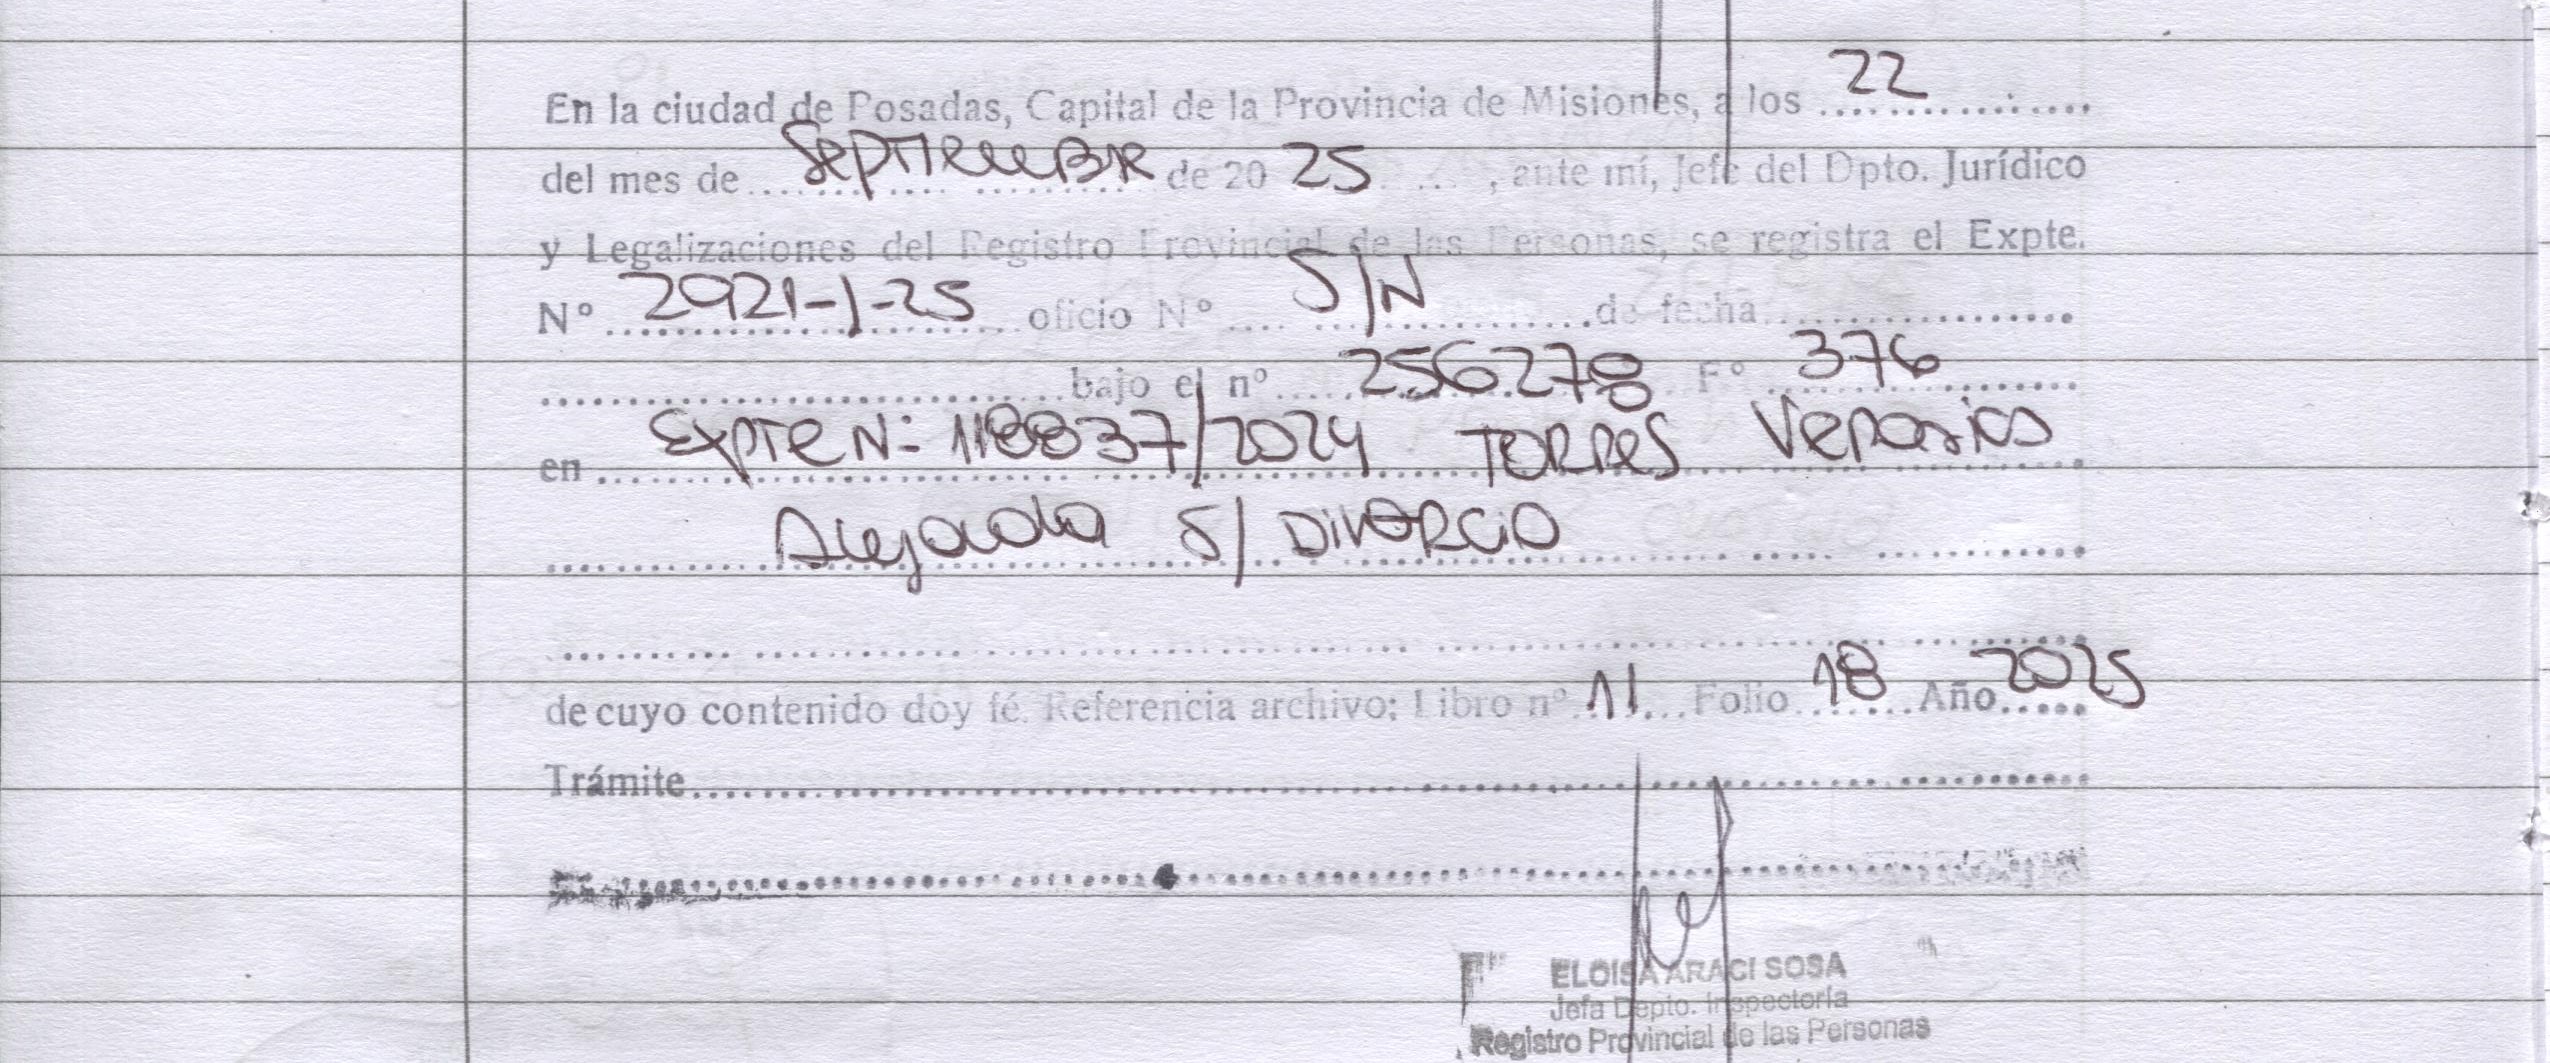 En la ciudad de Posadas, Capital de la Provincia de Misiones, a los 22
del mes de Septiembre de 20 25, ante mí, Jefe del Dpto. Jurídico
y Legalizaciones del Registro Provincial de las Personas, se registra el Expte.
Nº 2921-J-25 oficio Nº S/N de fecha
bajo el nº 256.278 Fº 376
en Expte N: 118837/2024 TORRES Veronica
Alejandra S/ DIVORCIO
de cuyo contenido doy fé. Referencia archivo: Libro nº 11 Folio 18 Año 2025
Trámite
ELOISA ARACI SOSA
Jefa Depto. Inspectoría
Registro Provincial de las Personas